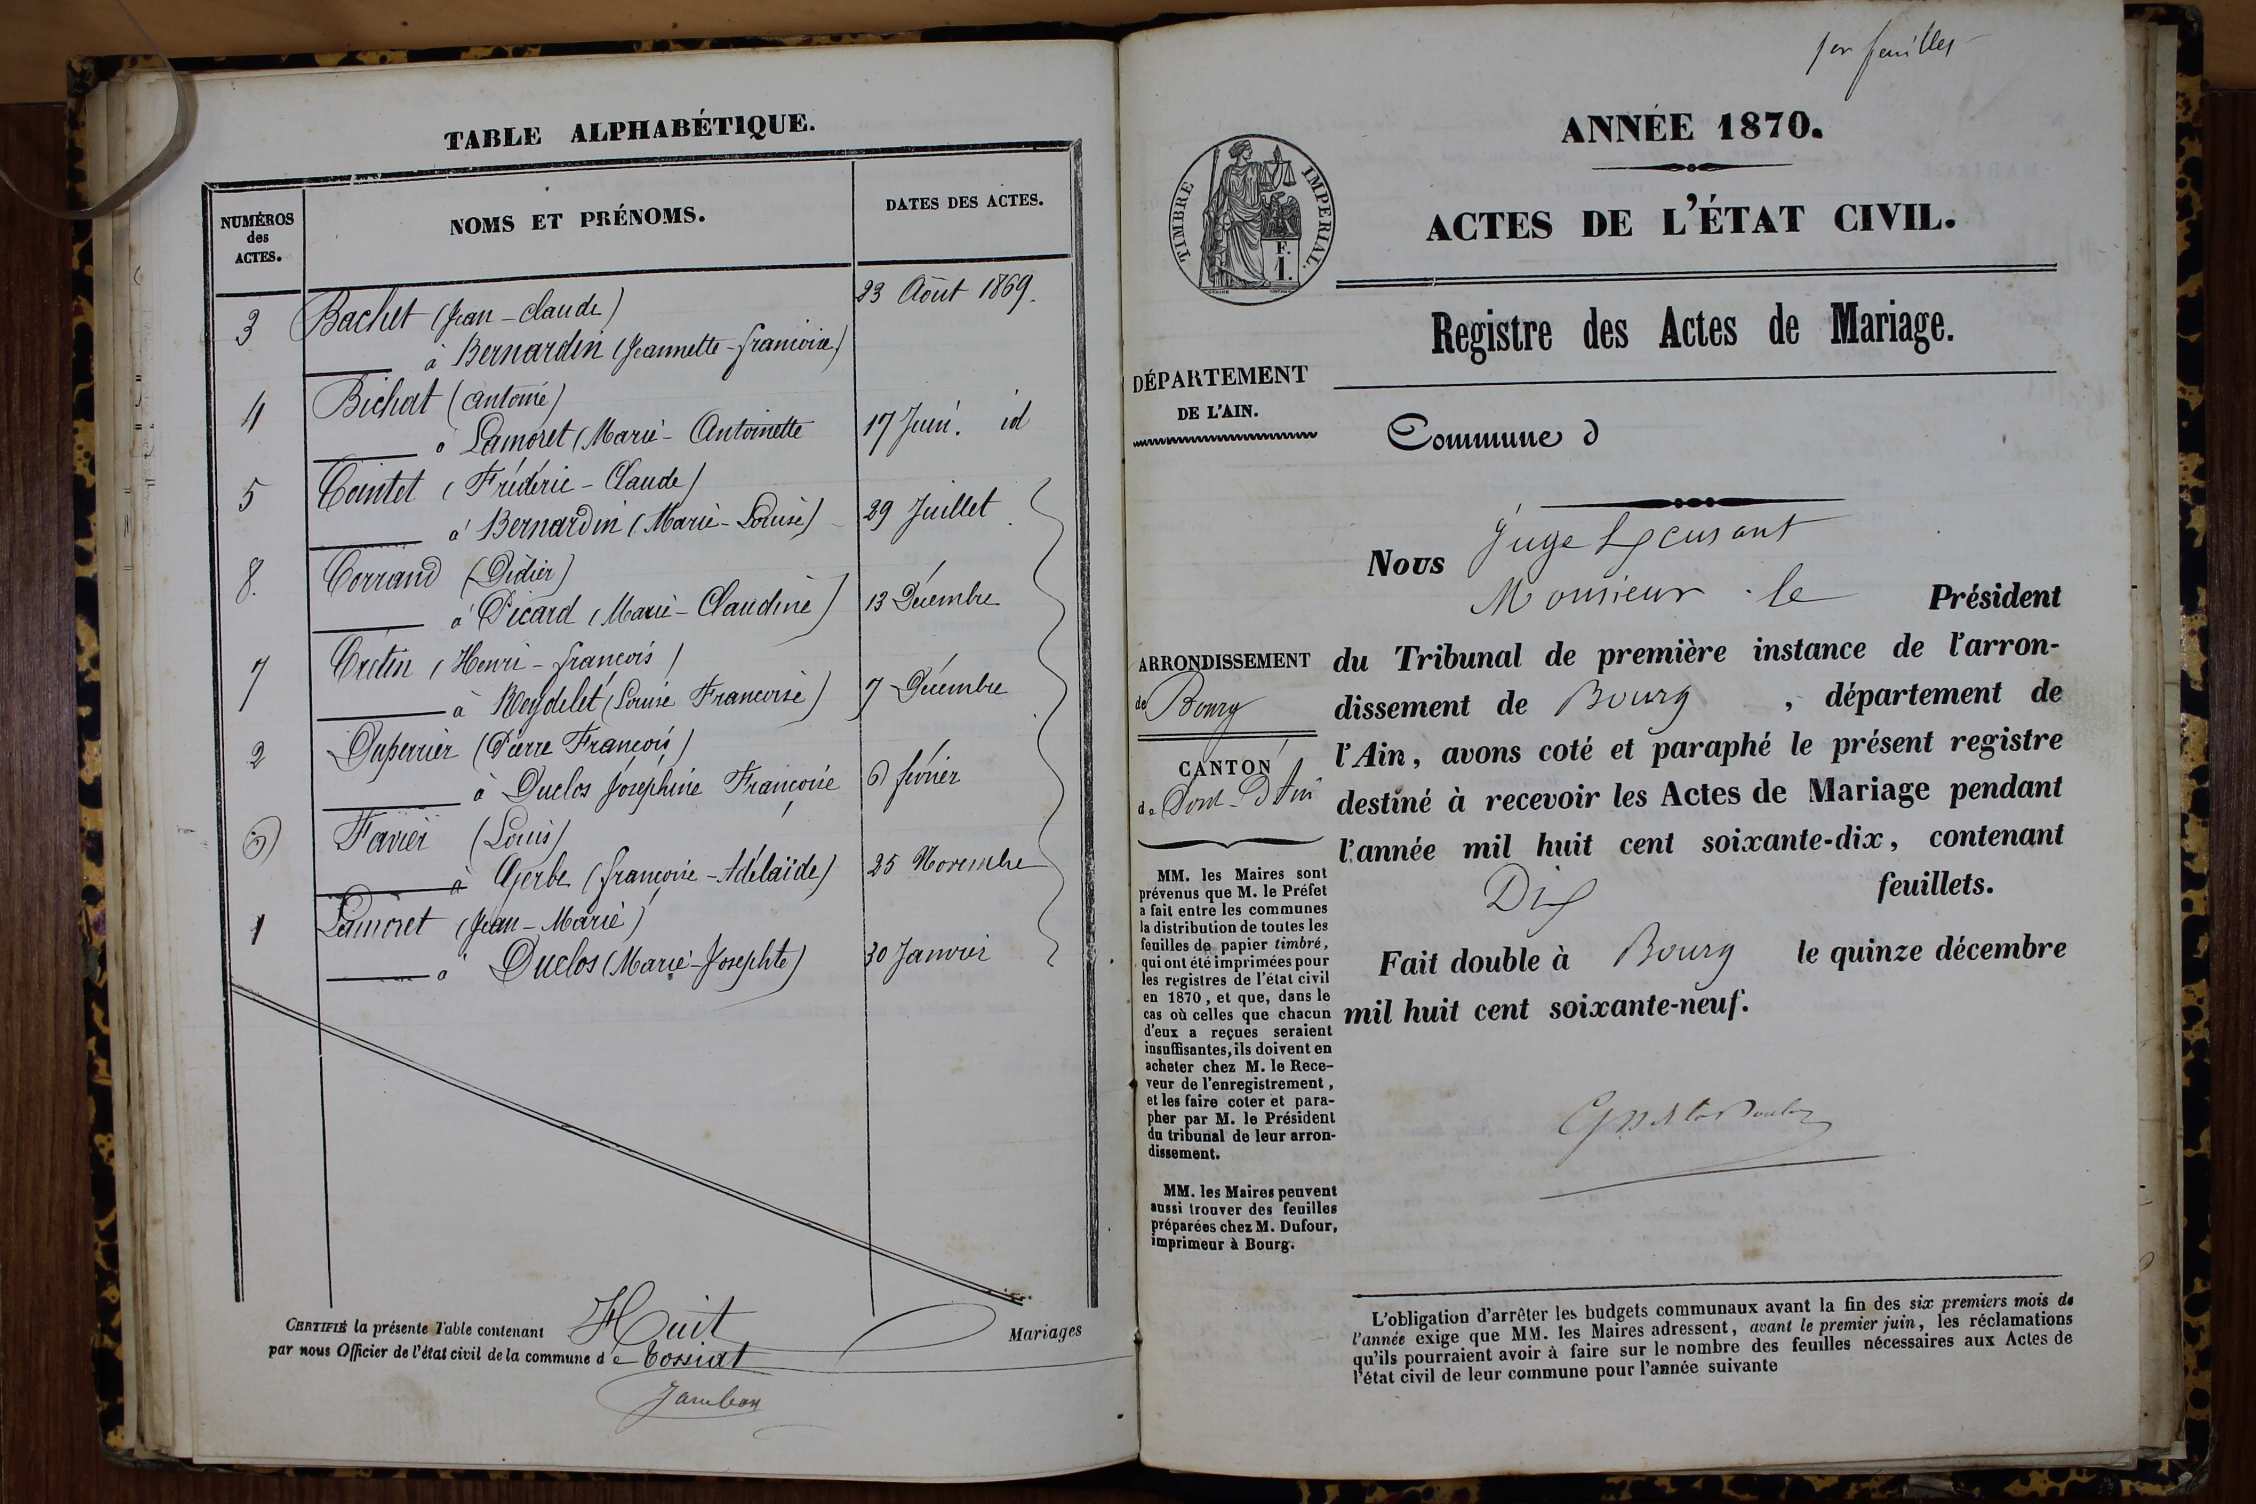 TABLE ALPHABÉTIQUE.
NUMÉROS
des
ACTES.
NOMS ET PRÉNOMS.
DATES DES ACTES.
3 Bachet (Jean-Claude) 23 Août 1869.
à Bernardin (Jeannette-françoise)
4 Bichat (antoine)
à Lamoret (Marie-Antoinette 17 Juin. id
5 Cointet (Frédéric-Claude)
à Bernardin (Marie-Louise) 29 Juillet
8. Corrand (Didier)
à Picard (Marie-Claudine) 13 Décembre
7 Crétin (Henri-françois)
à Reydelet (Louise Francoise) 7 Décembre
2 Duperrier (Pierre François)
à Duclos Joséphine Françoise 6 février
6 Favier (Louis)
à Gerbe (françoise-Adélaïde) 25 Novembre
1 Lamoret (Jean-Marie)
à Duclos (Marie-Josephte) 30 Janvier
CERTIFIÉ la présente Table contenant Huit Mariages
par nous Officier de l'état civil de la commune de Tossiat
Jambon
feuilles
ANNÉE 1870.
ACTES DE L'ÉTAT CIVIL.
TIMBRE IMPÉRIAL.
F.
1.
Registre des Actes de Mariage.
DÉPARTEMENT
DE L'AIN.
Commune d
ARRONDISSEMENT
de Bourg
CANTON
de Pont-d'Ain
MM. les Maires sont
prévenus que M. le Préfet
a fait entre les communes
la distribution de toutes les
feuilles de papier timbré,
qui ont été imprimées pour
les registres de l'état civil
en 1870, et que, dans le
cas où celles que chacun
d'eux a reçues seraient
insuffisantes, ils doivent en
acheter chez M. le Rece-
veur de l'enregistrement,
et les faire coter et para-
pher par M. le Président
du tribunal de leur arron-
dissement.
MM. les Maires peuvent
aussi trouver des feuilles
préparées chez M. Dufour,
imprimeur à Bourg.
Nous Juge
Monsieur le Président
du Tribunal de première instance de l'arron-
dissement de Bourg, département de
l'Ain, avons coté et paraphé le présent registre
destiné à recevoir les Actes de Mariage pendant
l'année mil huit cent soixante-dix, contenant
Dix feuillets.
Fait double à Bourg le quinze décembre
mil huit cent soixante-neuf.
L'obligation d'arrêter les budgets communaux avant la fin des six premiers mois de
l'année exige que MM. les Maires adressent, avant le premier juin, les réclamations
qu'ils pourraient avoir à faire sur le nombre des feuilles nécessaires aux Actes de
l'état civil de leur commune pour l'année suivante